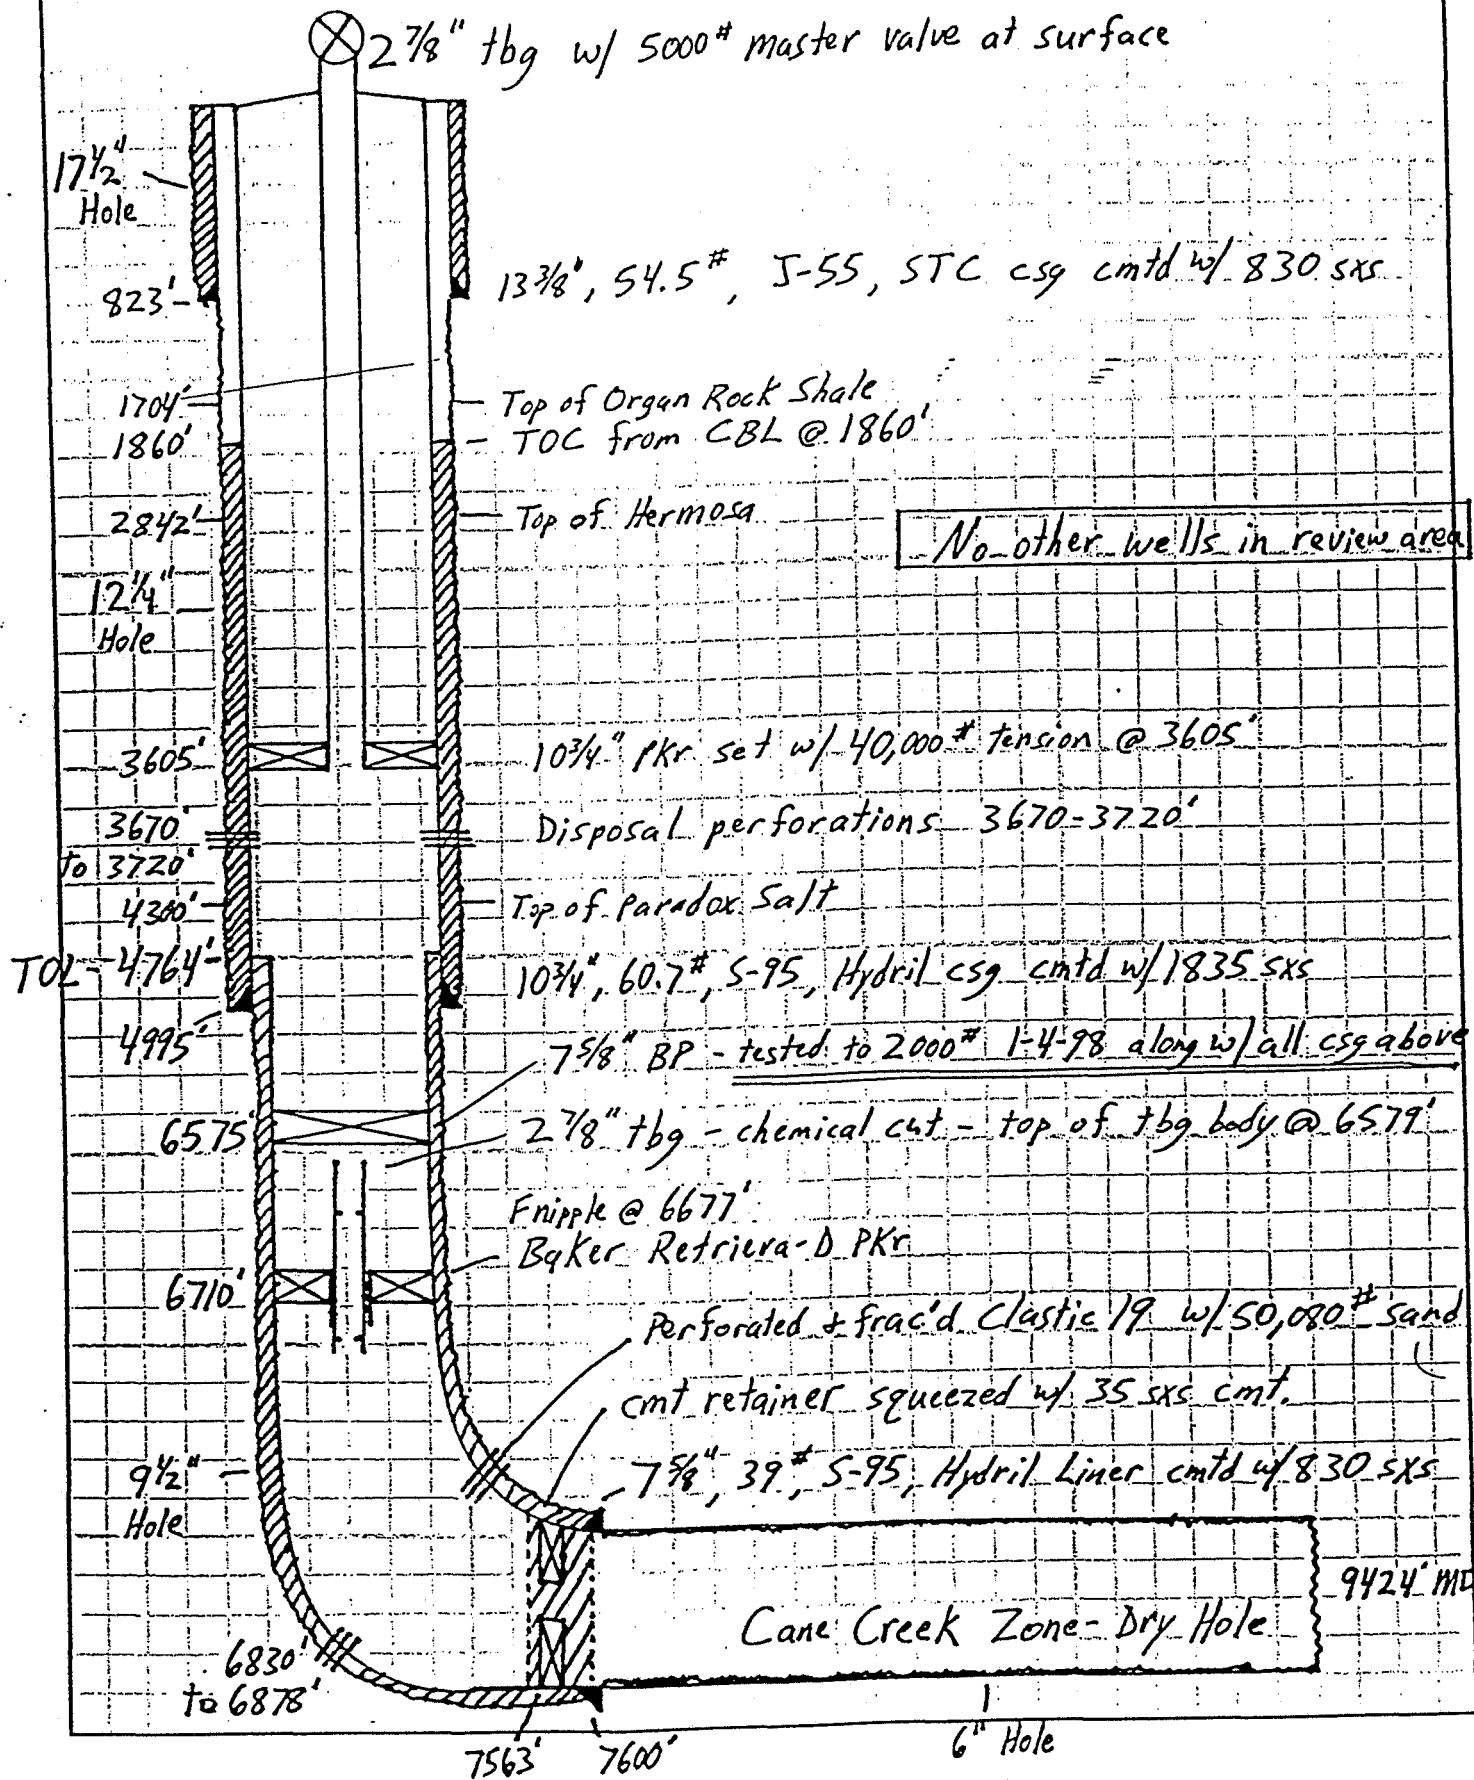 2 7/8" tbg w/ 5000# master valve at surface
17 1/2"
Hole
823'
13 3/8", 54.5#, J-55, STC csg cmtd w/ 830 sxs
1704'
Top of Organ Rock Shale
1860'
TOC from CBL @ 1860'
2842'
Top of Hermosa
No other wells in review area
12 1/4"
Hole
3605'
10 3/4" PKr set w/ 40,000# tension @ 3605'
3670'
to 3720'
Disposal perforations 3670-3720'
4360'
Top of Paradox Salt
TOL - 4764'
10 3/4", 60.7#, S-95, Hydril csg cmtd w/ 1835 sxs
4995'
7 5/8" BP - tested to 2000# 1-4-98 along w/ all csg above
6575'
2 7/8" tbg - chemical cut - top of tbg body @ 6579'
F nipple @ 6677'
Baker Retrieva-D PKr
6710'
Perforated & frac'd Clastic 19 w/ 50,080# sand
cmt retainer squeezed w/ 35 sxs cmt.
9 1/2"
Hole
7 5/8", 39#, S-95, Hydril Liner cmtd w/ 830 sxs
9424' MD
Cane Creek Zone - Dry Hole
6830'
to 6878'
7563'
7600'
6" Hole